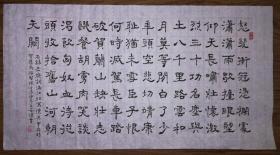 怒髮衝冠憑欄處
瀟瀟雨歇抬望眼
仰天長嘯壯懷激
烈三十功名塵與
土八千里路雲和
月莫等閒白了少
年頭空悲切靖康
恥猶未雪臣子恨
何時滅駕長車踏
破賀蘭山缺壯志
饑餐胡虜肉笑談
渴飲匈奴血待從
頭收拾舊山河朝
天闕